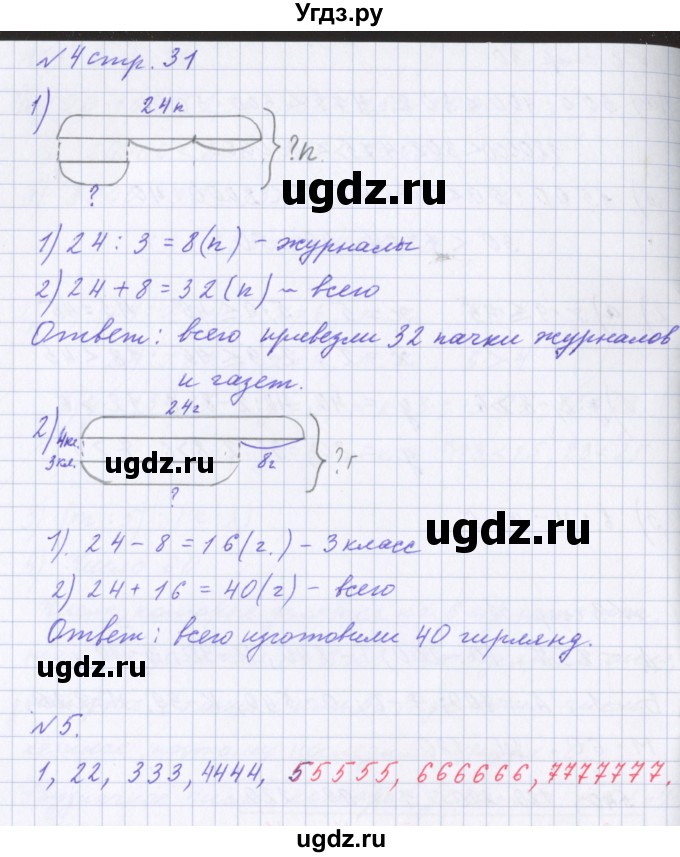 Угдз.ру
№4 стр. 31
1) 24п
?п.
?
ugdz.ru
1) 24 : 3 = 8(п) – журналы
2) 24 + 8 = 32 (п) – всего
Ответ: всего привезли 32 пачки журналов
и газет.
2) 24г
4кл.
3кл. 8г ?г
ugdz.ru
?
1) 24 – 8 = 16(г.) – 3 класс
ugdz.ru
2) 24 + 16 = 40(г) – всего
Ответ: всего изготовили 40 гирлянд.
ugdz.ru
№5.
1, 22, 333, 4444, 55555, 666666, 7777777.
ugdz.ru